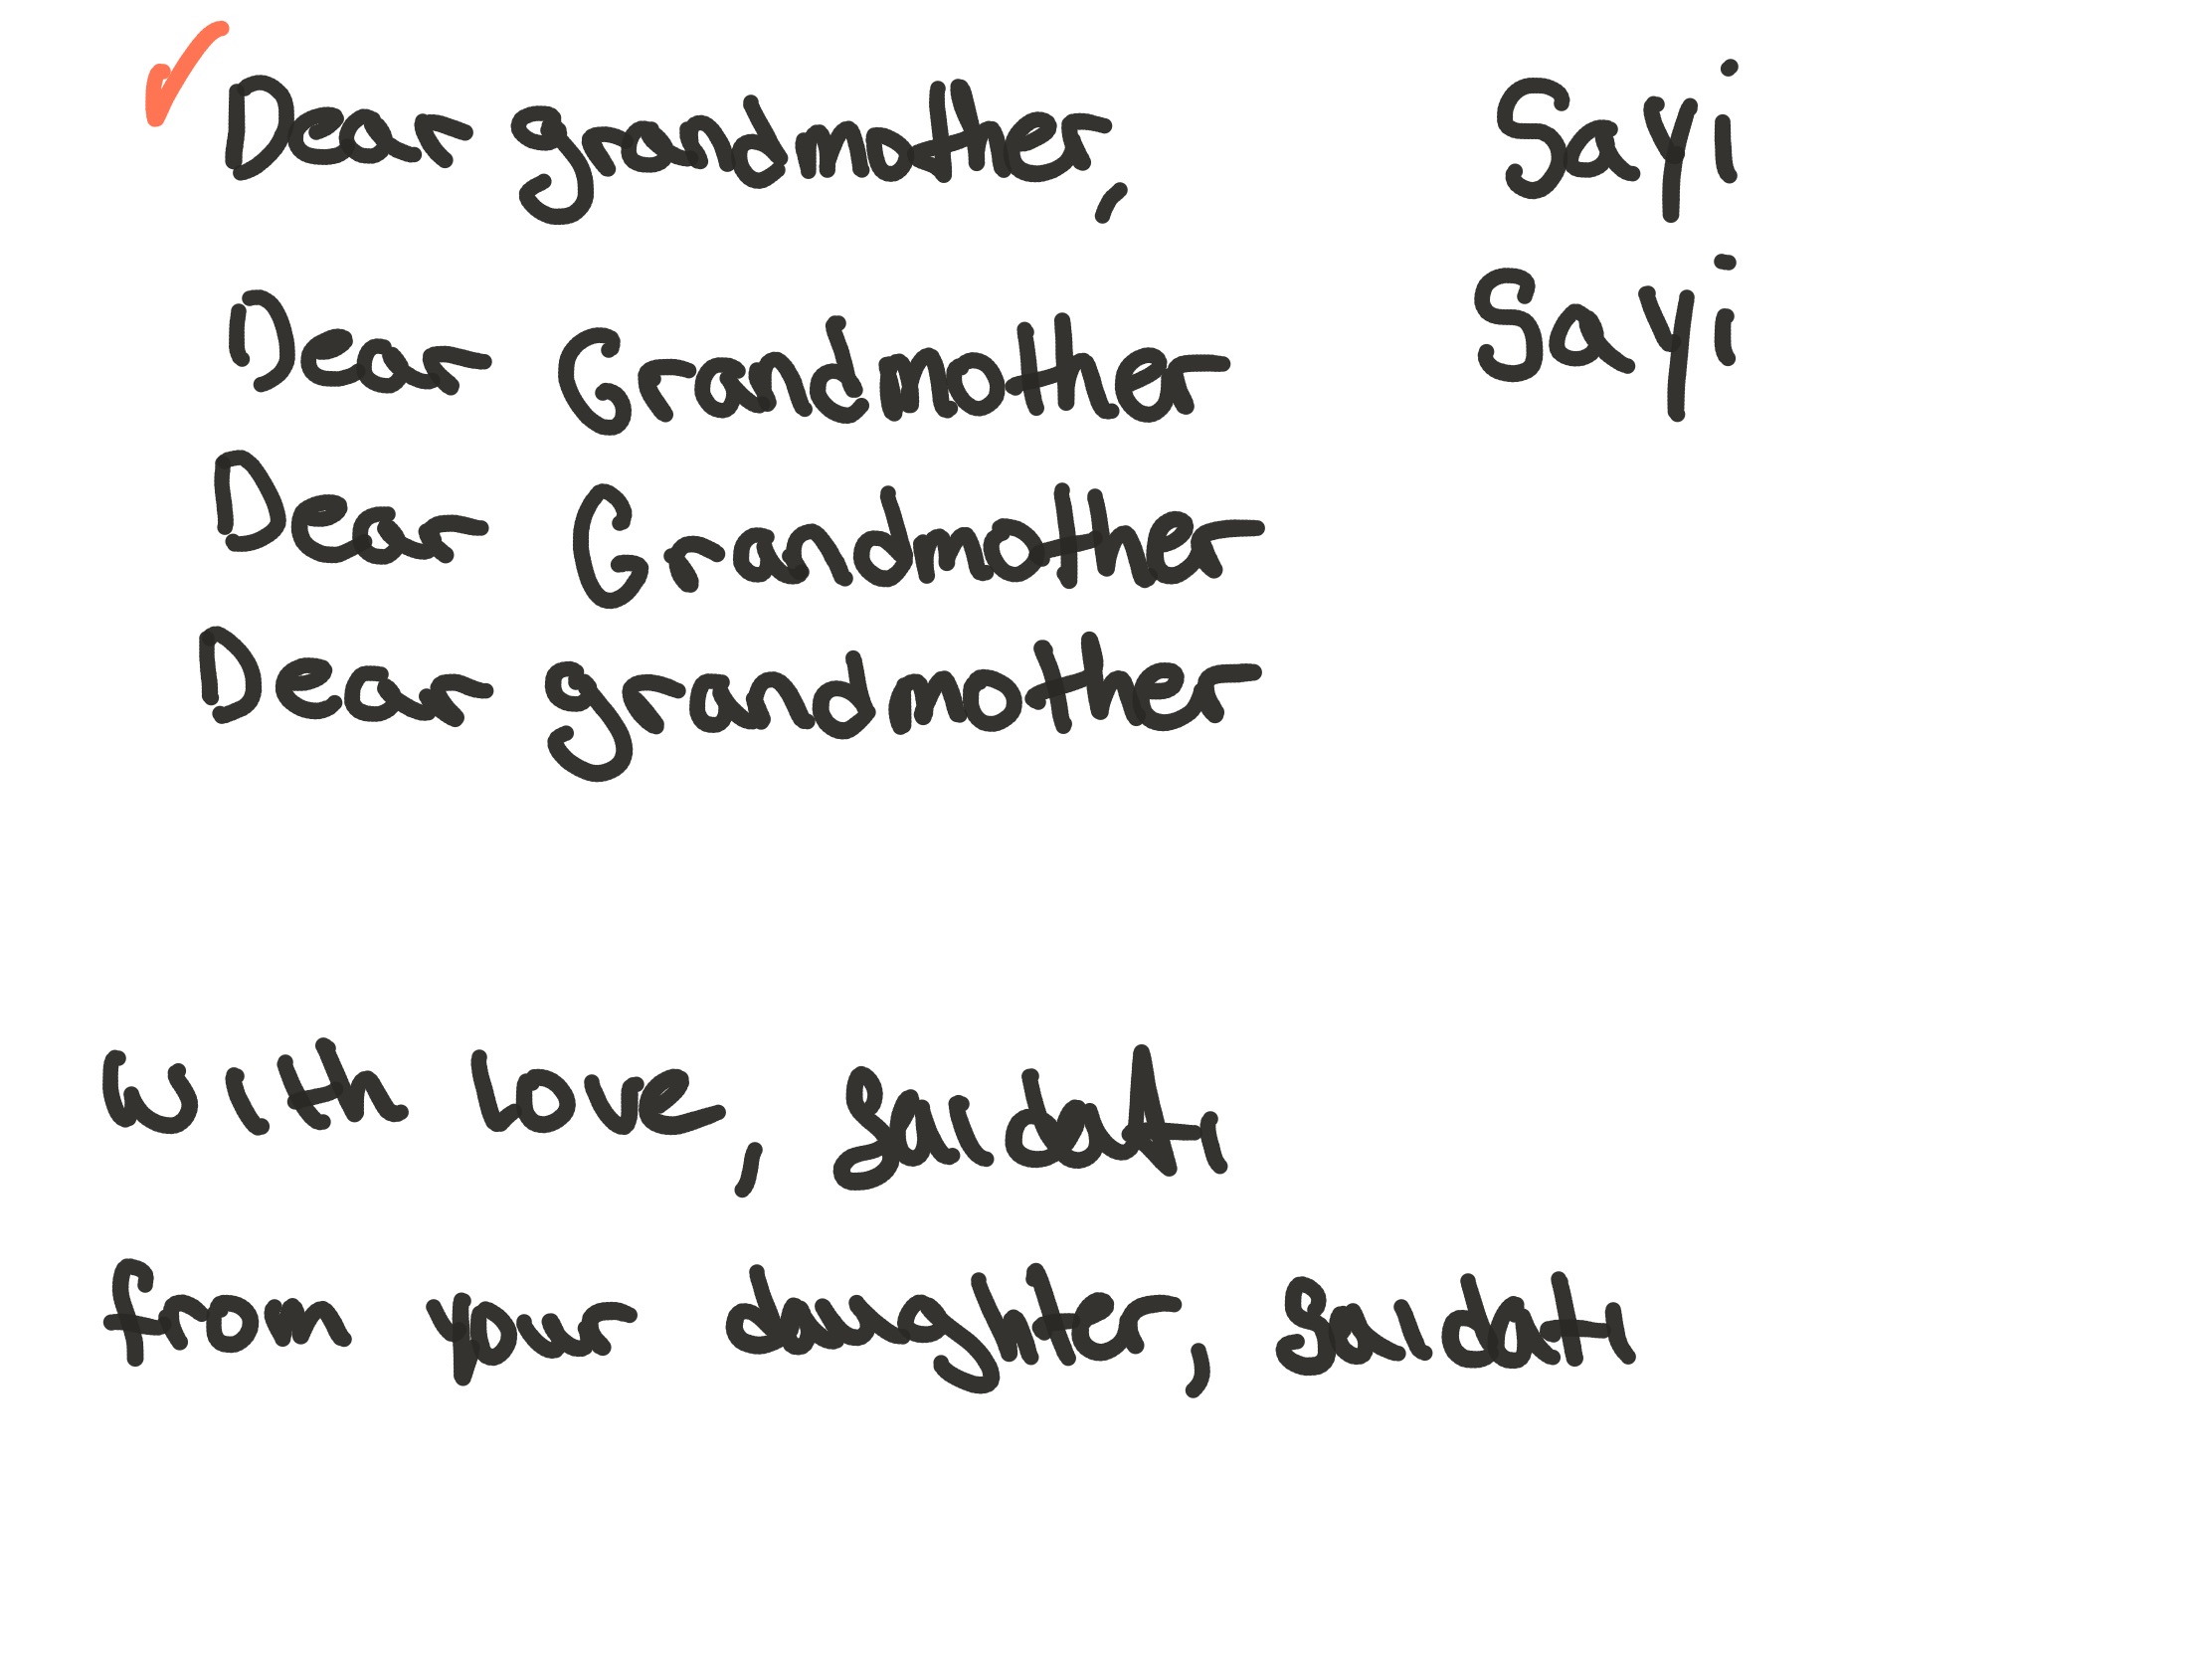 Dear grandmother, Sayi
Dear Grandmother Sayi
Dear Grandmother
Dear grandmother
With love, Saidati
from your daughter, Saidati